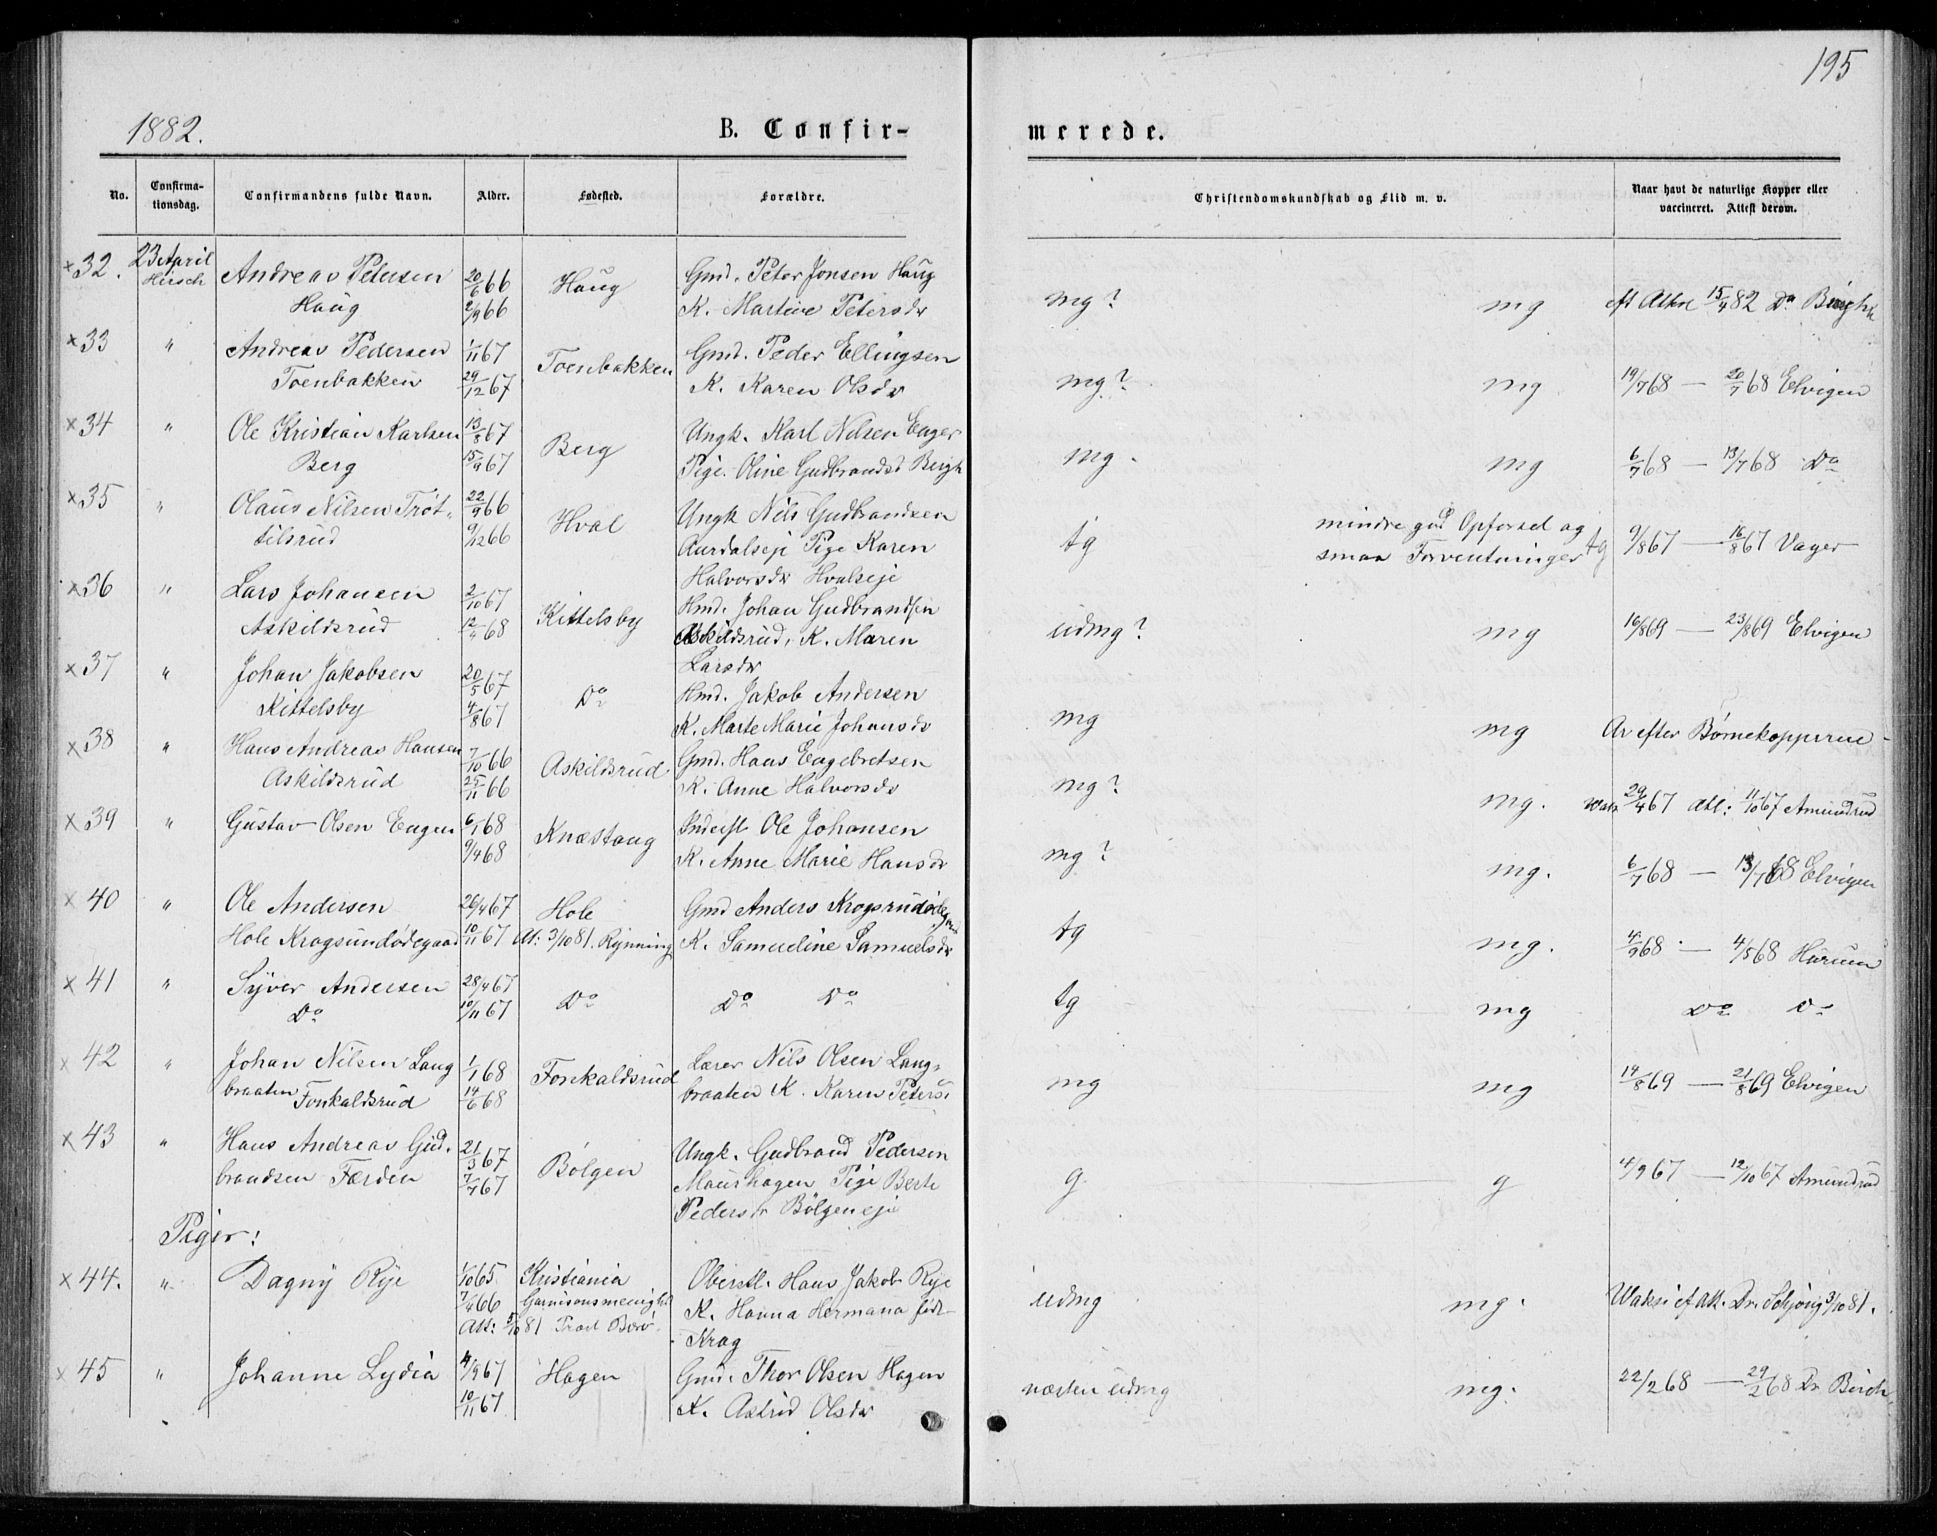 195
1882.
B. Confir-
merede.
No.
Confirma-
tionsdag.
Confirmandens fulde Navn.
Alder.
Fødested.
Forældre.
Christendomskundskab og Flid m. v.
Naar havt de naturlige Kopper eller
vaccineret. Attest derom.
×32. 23 April Andreas Petersen 20/6 66 Haug Gmd. Peter Jonsen Haug mg? mg 15/4 82 Dr
Hirsch Haug 2/9 66 K. Martine Petersdr
×33 " Andreas Pedersen 1/11 67 Toenbakken Gmd. Peder Ellingsen mg? mg 19/7 68 — 20/7 68 Elvigen
Toenbakken 29/12 67 K. Karen Olsdr
×34 " Ole Kristian Karlsen 13/8 67 Berg Ungk. Karl Nilsen Enger mg. mg 6/7 68 — 13/7 68 Do
Berg 15/9 67 Pige. Oline Gudbrandsd Bergh
×35 " Olaus Nilsen Trøt- 22/9 66 Hval Ungk Nils Gudbrandsen tg mindre god Opførsel og tg 9/8 67 — 16/8 67 Vager
tilsrud 9/12 66 Aurdalseje Pige Karen smaa Forventninger
Halvorsdr Hvalseje
×36 " Lars Johansen 2/10 67 Kittelsby Hmd. Johan Gudbrandsen udmg? mg 16/8 69 — 23/8 69 Elvigen
Askildsrud 12/4 68 Askildsrud, K. Maren
Larsdr
×37 " Johan Jakobsen 20/5 67 Do Hmd. Jakob Andersen mg mg Ar efter Børnekopperne
Kittelsby 4/8 67 K. Marte Marie Johansdr
×38 " Hans Andreas Hansen 7/10 66 Askildsrud Gmd. Hans Engebretsen mg? mg. 29/4 67 Att: 11/10 67 Amundrud
Askildsrud 25/11 66 K. Anne Halvorsdr
×39 " Gustav Olsen Engen 6/1 68 Knæstang Inderst Ole Johansen mg? mg. 6/7 68 — 13/7 68 Elvigen
9/4 68 K. Anne Marie Hansdr
×40 " Ole Andersen 26/4 67 Hole Gmd Anders tg mg. 4/9 68 — 4/5 68 Hurum
Hole 10/11 67 At: 3/10 81. Rynning K. Samueline Samuelsdr
×41 " Syver Andersen 28/4 67 Do Do Do tg mg Do Do
Do 10/11 67
×42 " Johan Nilsen Lang 1/1 68 Fonkaldsrud Lærer Nils Olsen Lang- mg mg 14/8 69 — 21/8 69 Elvigen
braaten Fonkaldsrud 14/6 68 braaten K. Karen Peters:
×43 " Hans Andreas Gud- 21/3 67 Bølgen Ungk. Gudbrand Pedersen g g 4/9 67 — 12/10 67 Amundrud
brandsen Færden 7/7 67 Maurhagen Pige Berte
Pedersdr Bølgeneje
Piger:
×44. " Dagny Rye 1/10 65 Kristiania Oberstl. Hans Jakob Rye udmg mg. 3/10 81.
7/4 66 Garnisonsmenighd K. Hanna Hermana født
Att: 5/10 81 Krag
×45 " Johanne Lydia 4/9 67 Hagen Gmd. Thor Olsen Hagen næsten udmg mg. 22/2 68 — 29/2 68 Dr Birch
10/11 67 K. Astrid Olsdr